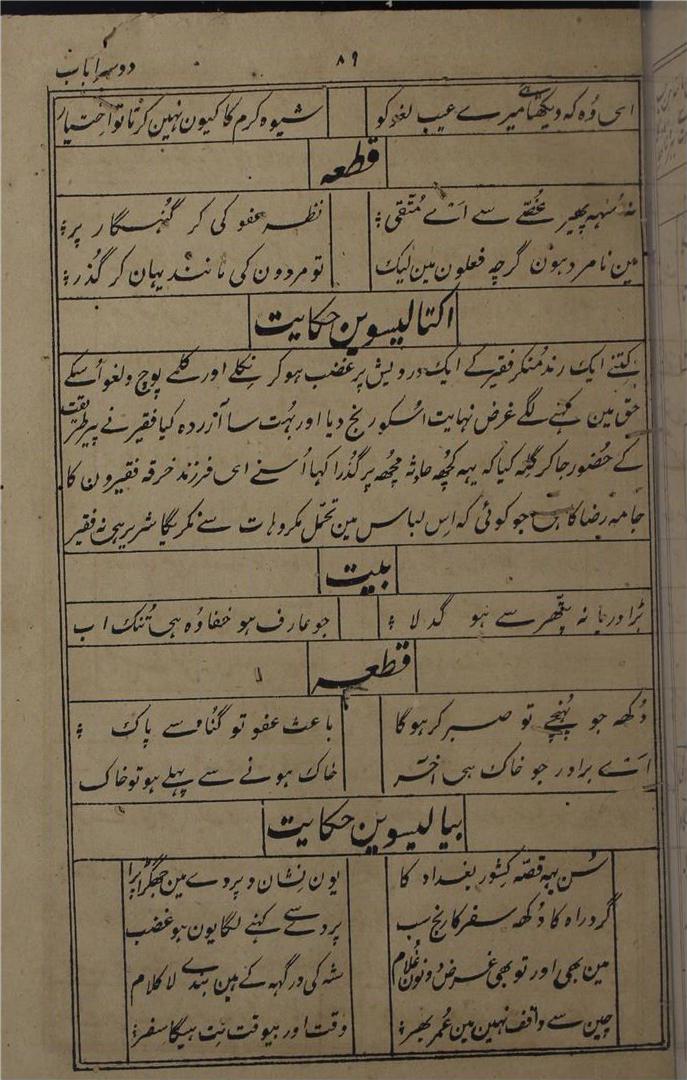 ۸۹
دوسرا باب
ای وہ کہ دیکھتا ہے میرے عیب لغو کو شیوہ کرم کا کیون نہین کرتا تو اختیار
قطعہ
نہ منہہ پھیر غصّے سے اَے مُتّقی ؛ نظر عفو کی کر گنہگار پر ؛
مین نامرد ہون گرچہ فعلون مین لیک تو مردون کی مانند یہان کر گُذر ؛
اکتالیسوین حکایت
کِتنے ایک رند مُنکر فقیر کے ایک درویش پر غضب ہو کر نِکلے اور کلمے پوچ و لغو اُسکے
حق مین کہنے لگے غرض نہایت اُسکو رنج دیا اور بہُت سا آزردہ کیا فقیر نے پیر طریقت
کے حُضور جا کر گلہ کیا کہ یہہ کچُھہ حادِثہ مجُھہ پر گُذرا کہا اُسنے ای فرزند خرقہ فقیرون کا
جامہ رضا کا ہی جو کوئی کہ اِس لباس مین تحمّل مکروہات سے نکریگا شریر ہی نہ فقیر
بیت
بڑا دریا نہ پتّھر سے ہو گدلا ؛ جو عارف ہو خفا وُہ ہی تُنک اب
قطعہ
دُکھہ جو پُہنچے تو صبر کر ہوگا باعث عفو تو گُناہ سے پاک ؛
اَے برادر جو خاک ہی آخر خاک ہونے سے پہلے ہو تو خاک
بیالیسوین حکایت
سُن یہہ قصّہ کشور بغداد کا یون نِشان و پردے مین جھگڑا پڑا
گرد راہ کا دُکھہ سفر کا رنج سب پردے سے کہنے لگا یون ہو غضب
مین بھی اور تو بھی غرض دونون غُلام شہ کی درگہہ کے ہین بندے لاکلام
چین سے واقف نہین مین عُمر بھر ؛ وقت اور بیوقت نِت ہیگا سفر ؛